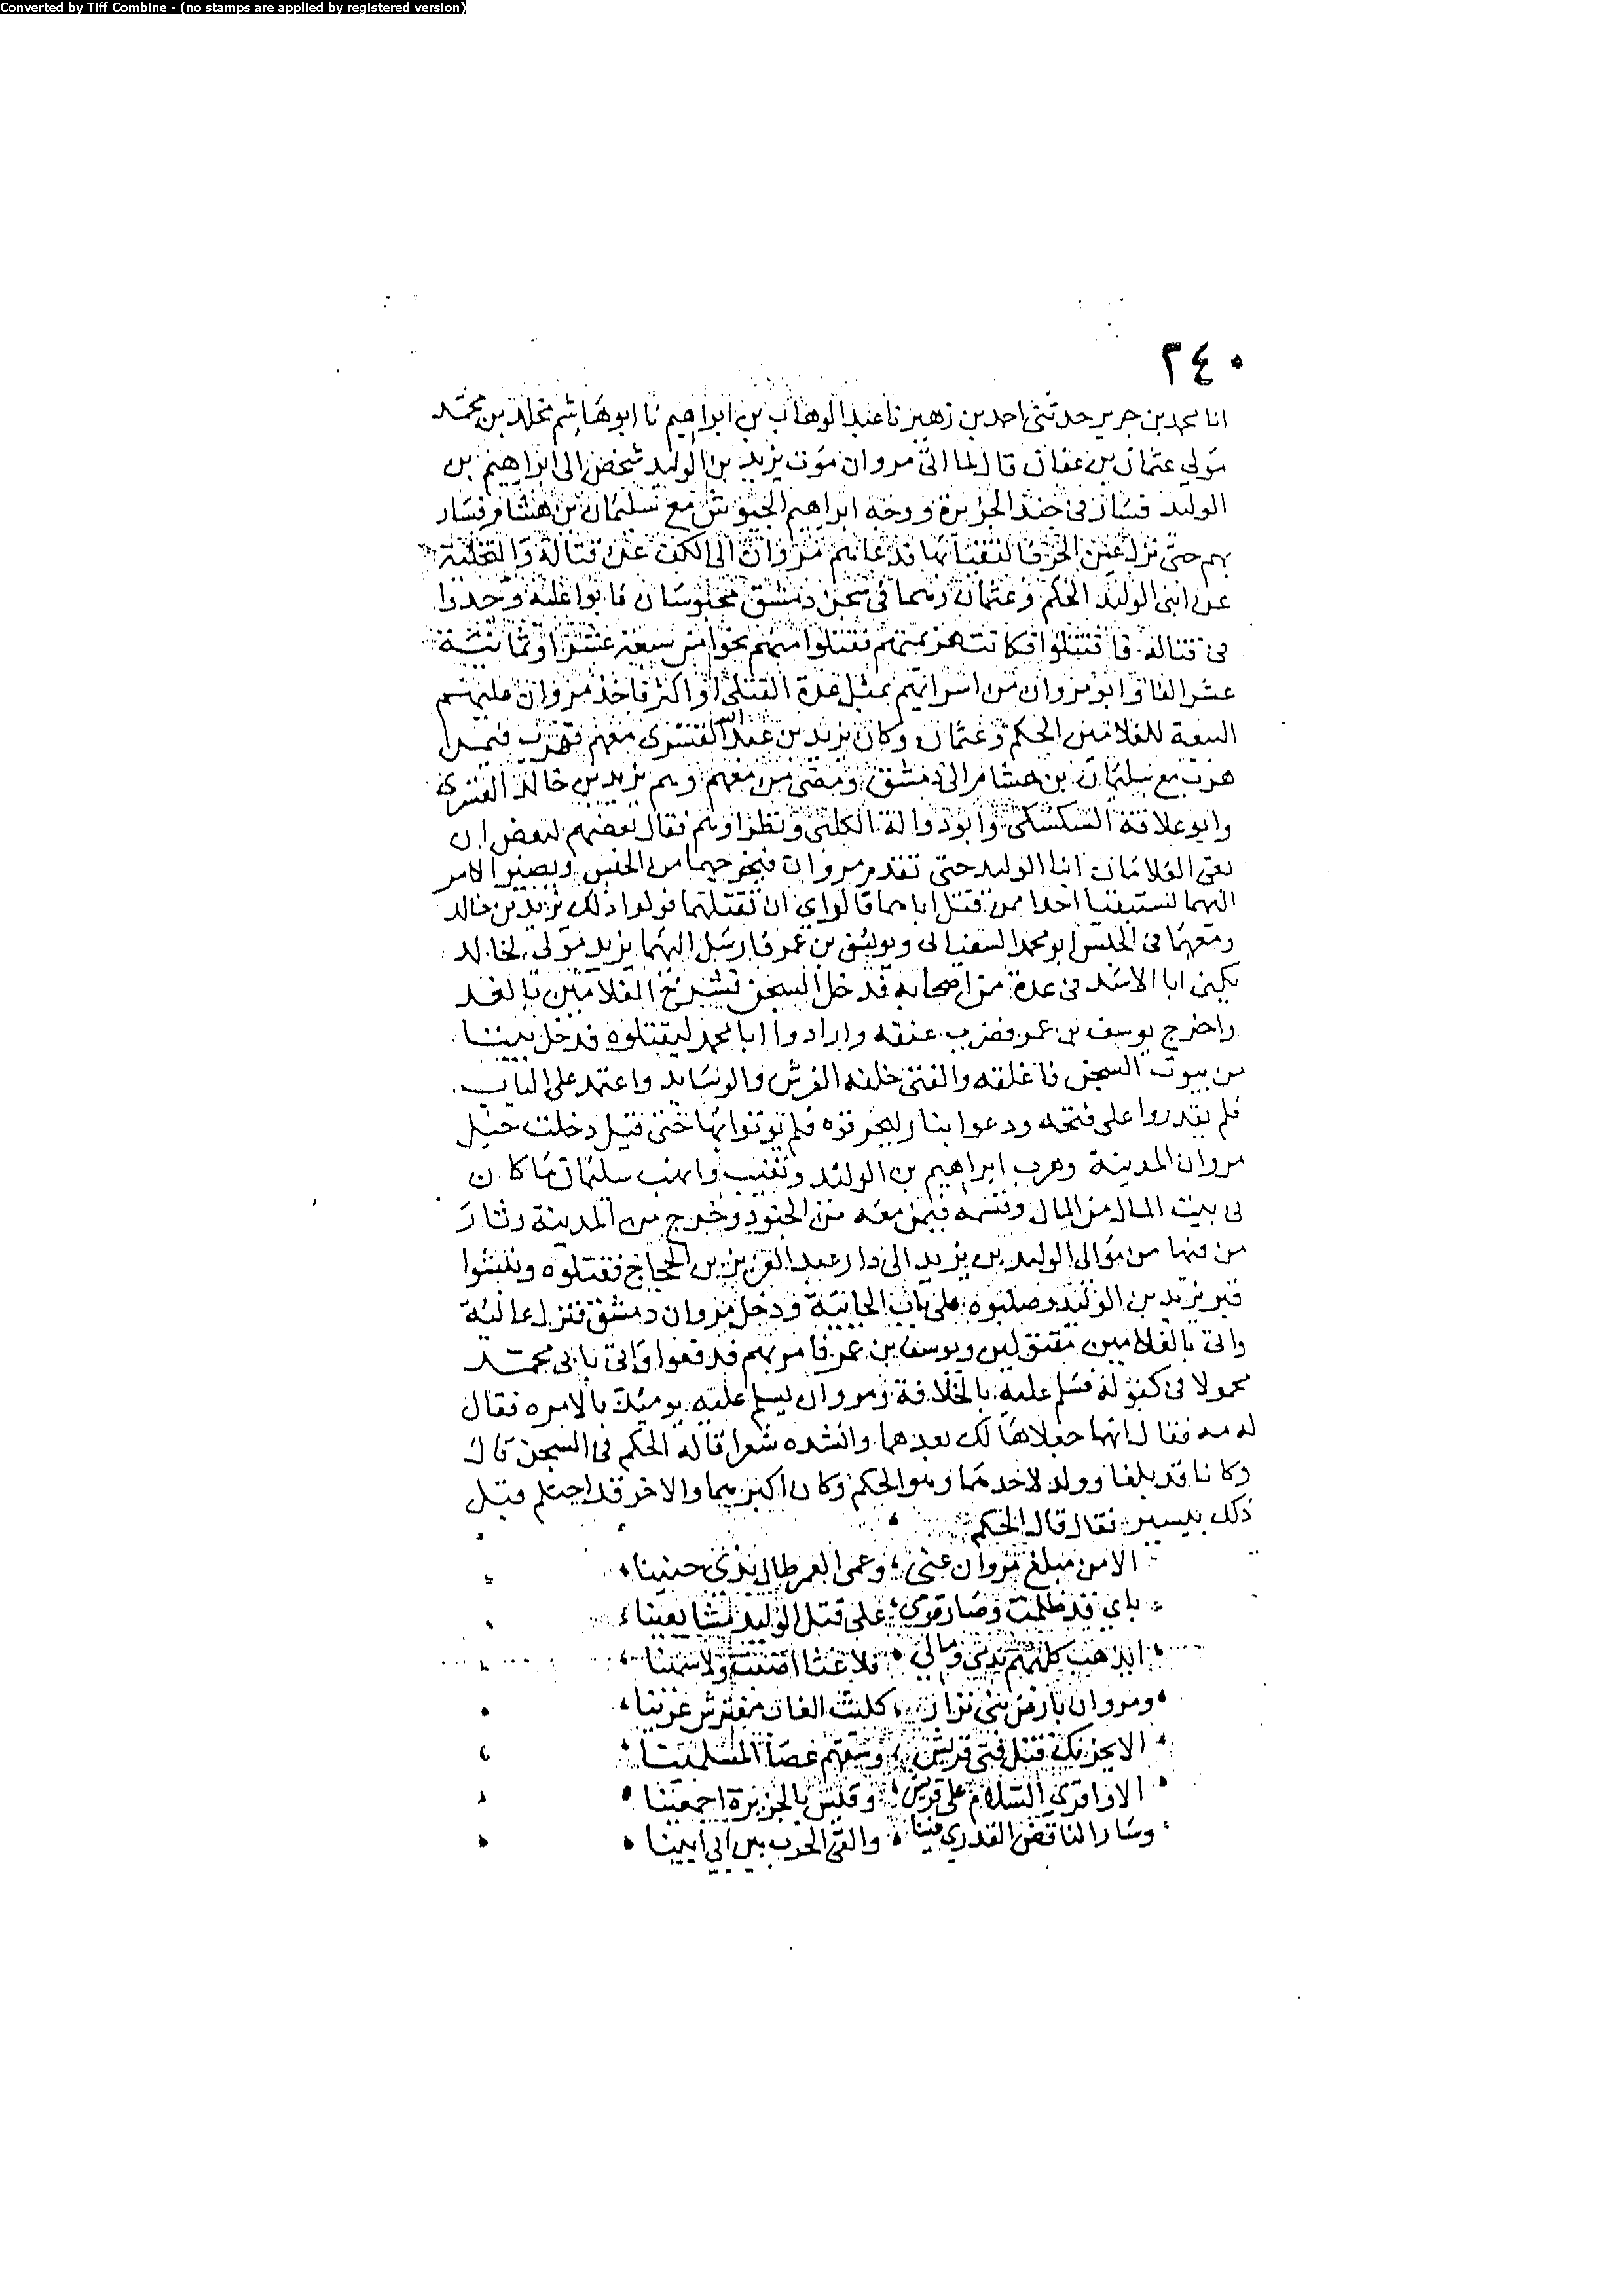 Converted by Tiff Combine - (no stamps are applied by registered version)
٣٤٠
انا محمد بن جرير حدثني احمد بن زهير نا عبد الوهاب بن ابراهيم نا ابو هاشم مخلد بن محمد
مولي عثمان بن عفان قال لما اتى مروان موت يزيد بن الوليد شخص الى ابراهيم بن
الوليد فسار في جند الجزيرة ووجه ابراهيم الجيوش مع سليمان بن هشام فسار
بهم حتى نزل عين الجر فالتقيا بها فدعاهم مروان الى الكف عن قتاله والتخلية
عن ابني الوليد الحكم وعثمان وهما في سجن دمشق محبوسان فابوا عليه وجدوا
في قتاله فاقتتلوا فكانت هزيمتهم فقتلوا منهم نحوا من سبعة عشر او ثمانية
عشر الفا واتوا مروان من اسرائهم بمثل عدة القتلى او اكثر فاخذ مروان عليهم
البيعة للغلامين الحكم وعثمان وكان يزيد بن عبد الله القسري معهم فهرب فيمن
هرب مع سليمان بن هشام الى دمشق ومضى من معهم وهم يزيد بن خالد القسري
وابو علاقة السكسكي وابو ذوالة الكلبي ونظراوهم فقال بعضهم لبعض ان
بقي الغلامان ابنا الوليد حتى تقدم مروان فيخرجهما من الحبس ويصير الامر
اليهما لم يستبقيا احدا ممن قتل اباهما قالوا ان نقتلهما فولوا ذلك يزيد بن خالد
ومعهما في الحبس ابو محمد السفياني ويوسف بن عمر فارسل اليهما يزيد مولى لخالد
يكنى ابا الاسد في عدة من اصحابه فدخل السجن فشدخ الغلامين بالعمد
واخرج يوسف بن عمر فضرب عنقه وارادوا ابا محمد ليقتلوه فدخل بيتا
من بيوت السجن فاغلقه والقى خلفه الفرش والوسايد واعتمد على الباب
فلم يقدروا على فتحه ودعوا بنار ليحرقوه فلم يوتوا بها حتى قيل دخلت خيل
مروان المدينة وهرب ابراهيم بن الوليد وتغيب وانهب سليمان ما كان
في بيت المال من المال وقسمه فيمن معه من الجنود وخرج من المدينة وثار
من فيها من موالى الوليد بن يزيد الى دار عبد العزيز بن الحجاج فقتلوه ونبشوا
قبر يزيد بن الوليد وصلبوه على باب الجابية ودخل مروان دمشق فنزل عالية
واتى بالغلامين مقتولين ويوسف بن عمر فامر بهم فدفنوا واتى بابى محمد
محمولا في كبوله فسلم عليه بالخلافة ومروان يسلم عليه يومئذ بالامره فقال
له مه فقال انهما جعلاها لك بعدهما وانشده شعرا قاله الحكم في السجن قال
وكانا قد بلغا وولد لاحدهما وهو الحكم وكان اكبرهما والاخر قد احتلم قبل
ذلك بيسير فقال قال الحكم
الا من مبلغ مروان عني وعمى الغمر طال بذى حنينا
باني قد ظلمت وصار قومي على قتل الوليد مشايعينا
ايذهب كلبهم بدمي ومالي فلا غثا اصبت ولا سمينا
ومروان بارض بني نزار كليث الغاب مفترش عرينا
الا يحزنك قتل فتى قريش وشقهم عصا المسلمينا
الا واقري السلام على قريش وقيس بالجزيرة اجمعينا
وسار الناقض القدري فينا والقى الحرب بين ابي ابينا